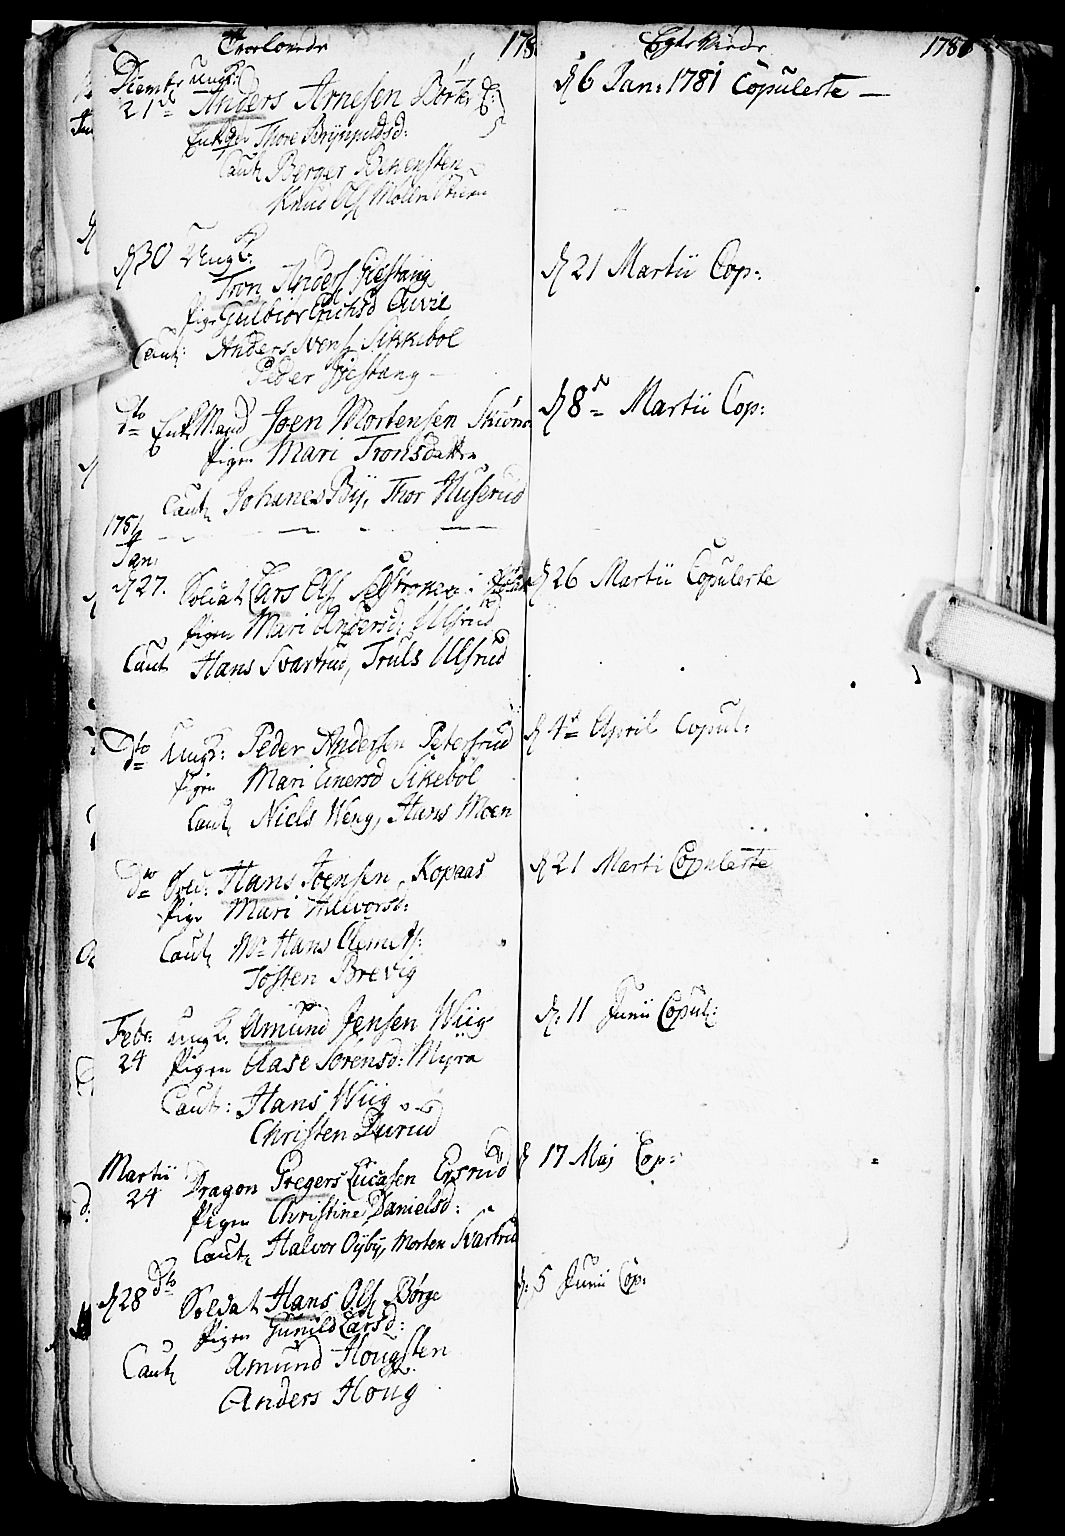 Troelovede 178
Decembr Ungk:
21de Anders Arnesen
Thore Brynildsd:
Caut: Berger
Knud Ols
d 30 Ungk:
Tron Anders Giestang
Pige Gulbior Erichsd
Caut: Anders Svens Sikkebøl
Peder Giestang
dto Enk Mand Joen Mortensen
Pigen Mari Tronsdatter
Caut: Johanes By, Thor Huserud
1781
Jan:
d 27. Soldat Lars Ols
Pigen Mari Andersd: Ulsrud
Caut Hans Svartrud, Truls Ulsrud
Dto Ungk: Peder Andersen Petersrud
Pigen Mari Einersd Sikebøl
Caut: Niels Weng, Hans Moen
dto Sold: Hans Joensen Kopaas
Pige Mari Halvorsd:
Caut: Hans Clemets:
Tosten Brevig
Febr: Ungk. Amund Jensen Wiig
24 Pigen Aase Sørensd: Myra
Caut: Hans Wiig
Christen Durud
Martii Dragon Gregers Lucasen
24 Pigen Christine Danielsd:
Caut: Halvor Oÿbÿ, Morten Svartrud
d 28 Dto Soldat Hans Ols Børge
Pigen Gunild Larsd:
Caut: Amund Hougsten
Anders Houg
Egteviede 1781
d 6 Jan: 1781 Copulerte —
d 21 Martii Cop:
d 8de Martii Cop:
d 26 Martii Copulerte
d 4de April Copul:
d 21 Marti Copulerte
d: 11 Junii Copul:
d 17 Maj Cop:
d: 5 Junii Cop: